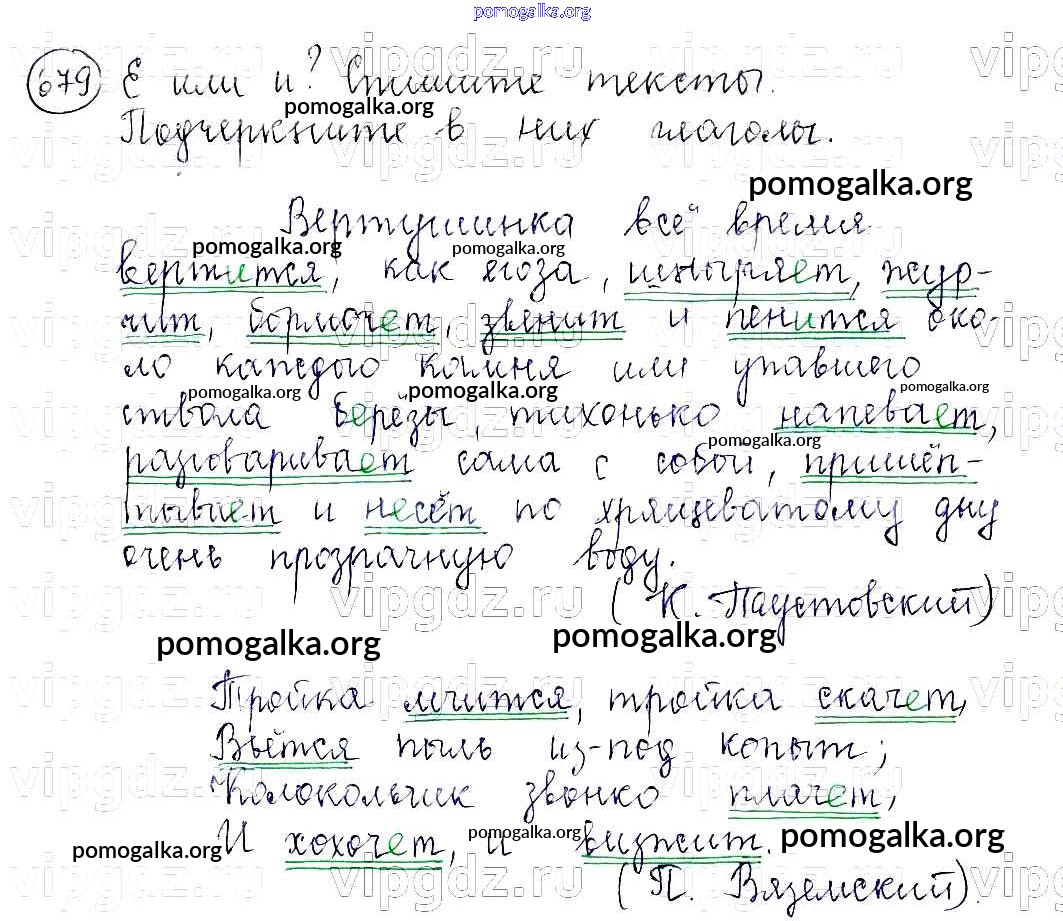 pomogalka.org
679 Е или и? Спишите тексты.
Подчеркните в них глаголы.
pomogalka.org
pomogalka.org
Вертушинка всё время
вертится, как егоза, шныряет, жур-
чит, бормочет, звенит и пенится око-
ло каждого камня или упавшего
ствола берёзы, тихонько напевает,
разговаривает сама с собой, пришёп-
тывает и несёт по хрящеватому дну
очень прозрачную воду.
(К. Паустовский)
pomogalka.org
pomogalka.org
Тройка мчится, тройка скачет,
Вьётся пыль из-под копыт;
Колокольчик звонко плачет,
И хохочет, и визжит.
(П. Вяземский).
pomogalka.org
pomogalka.org
pomogalka.org
vipgdz.ru